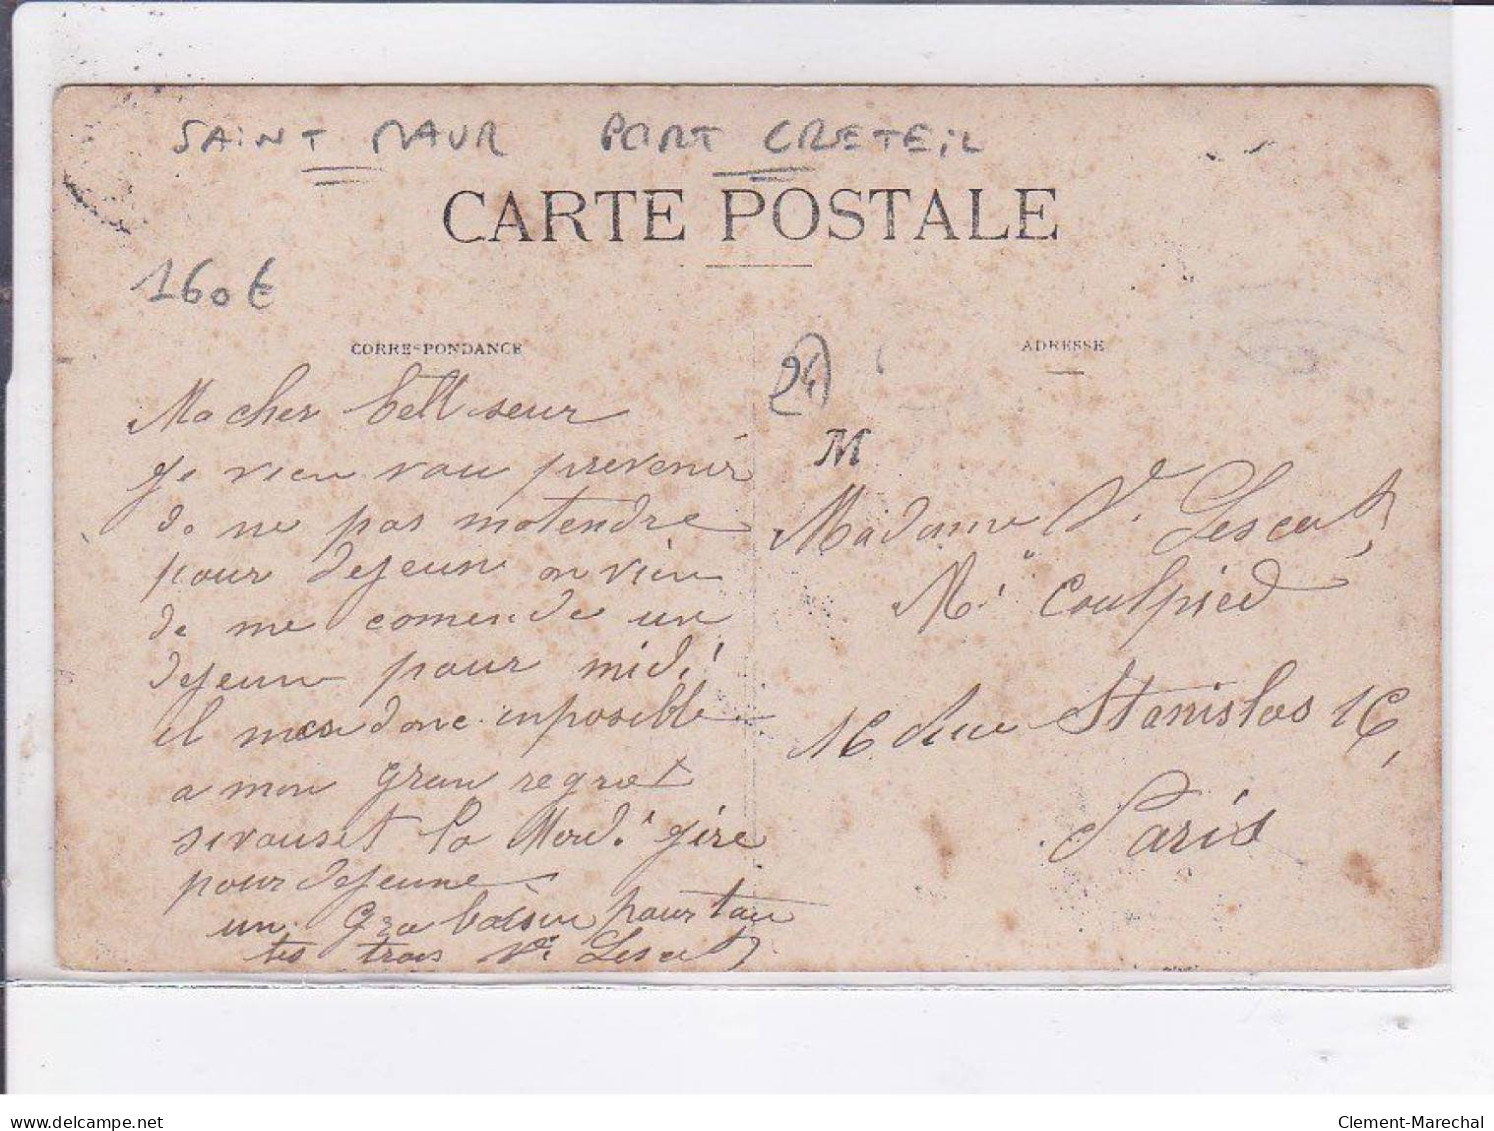 SAINT MAUR PORT CRETEIL
CARTE POSTALE
160€
CORRESPONDANCE
ADRESSE
24
M
Ma cher bell seur
je vien vou prevenir
de ne pas matendre
pour dejeune on vien
de me comende un
dejeune pour midi
il mes donc imposible
a mon gran regret
sivouset la Mordi gire
pour dejeune
un gro baisin pour tou
tes trois Ve Lescut
Madame Ve. Lescut,
Mn Coulpied
16 Rue Stanislas 16,
Paris
delcampe.net
Clement-Marechal